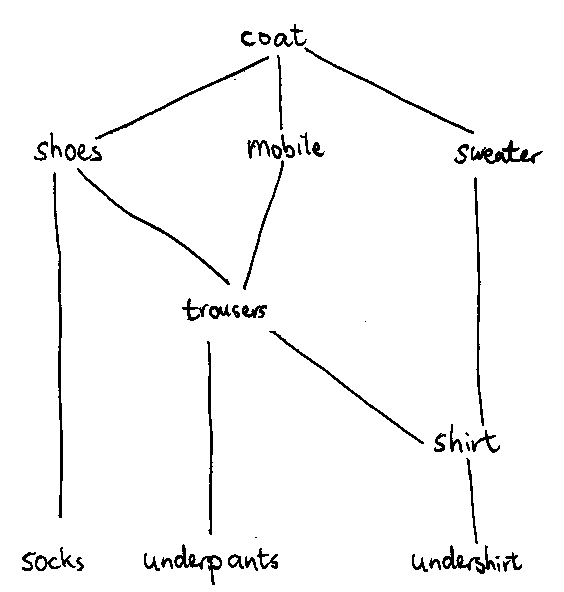 coat
shoes
mobile
sweater
trousers
shirt
socks
underpants
undershirt